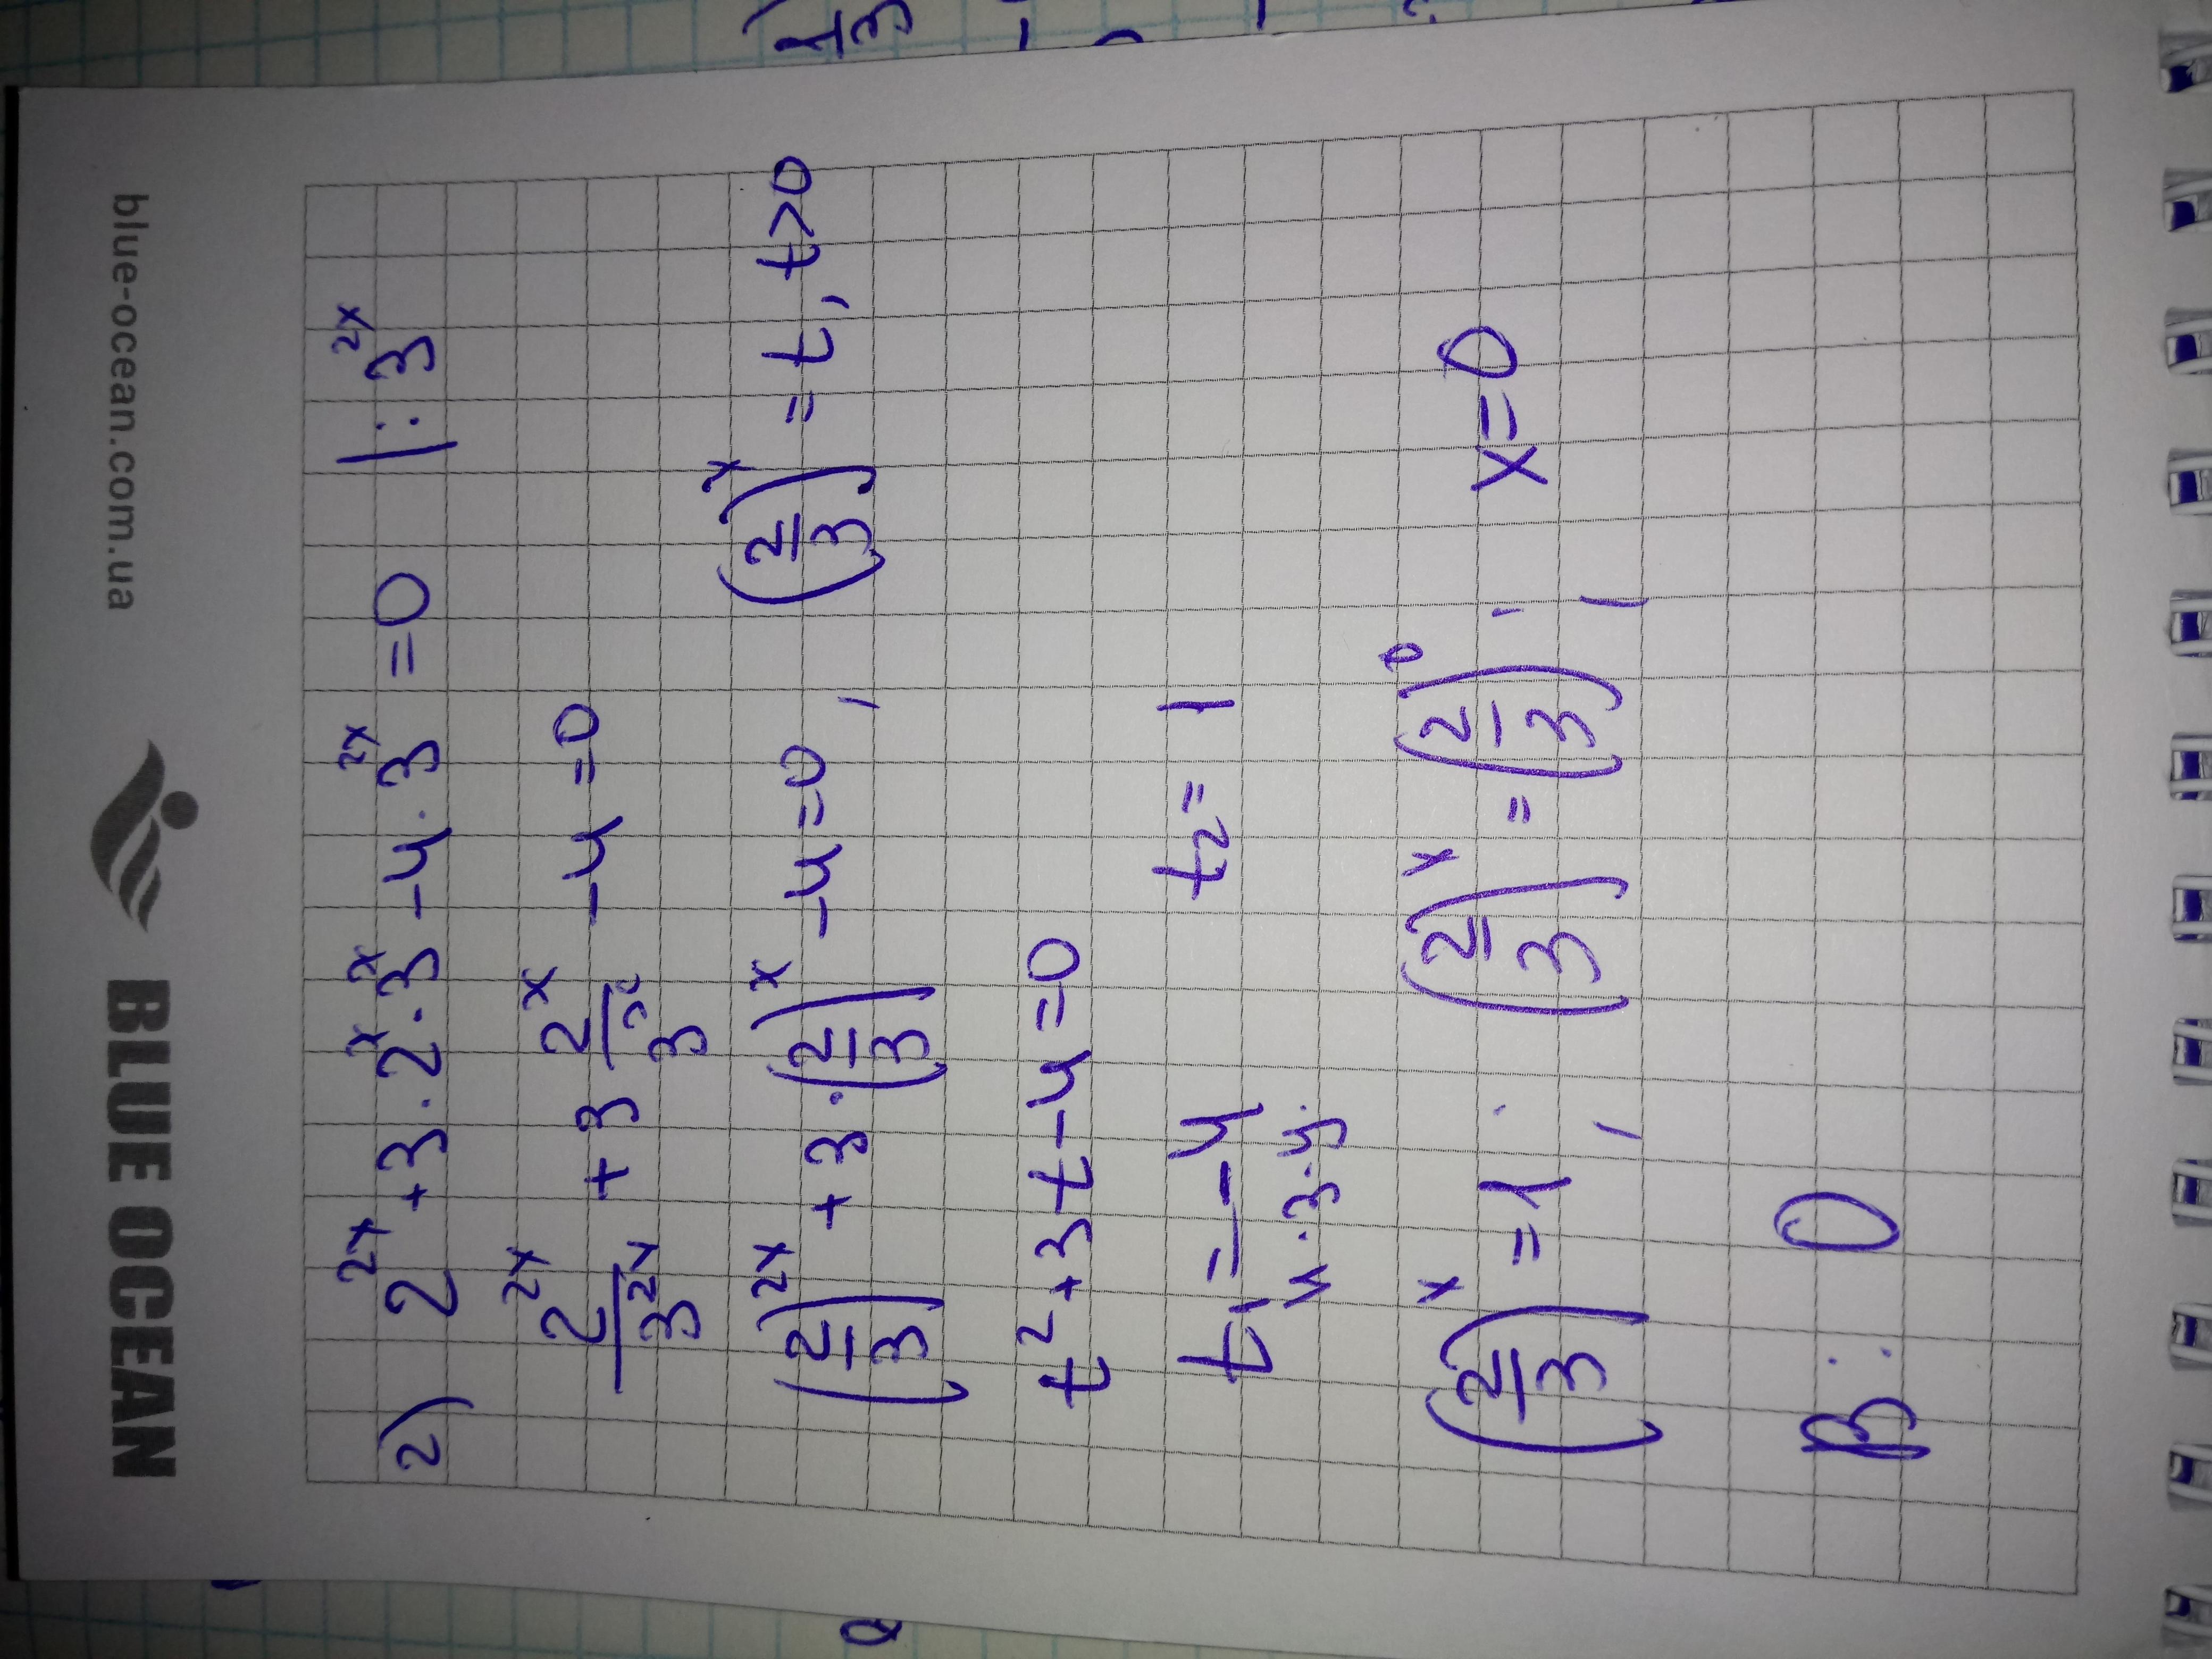 BLUE OCEAN blue-ocean.com.ua
2) 2^2x + 3 · 2^x · 3^x - 4 · 3^2x = 0 | : 3^2x
2^2x/3^2x + 3 2^x/3^x - 4 = 0
(2/3)^2x + 3 · (2/3)^x - 4 = 0, (2/3)^x = t, t > 0
t² + 3t - 4 = 0
t₁ = -4 t₂ = 1
(2/3)^x = 1, (2/3)^x = (2/3)^0; x = 0
В: 0